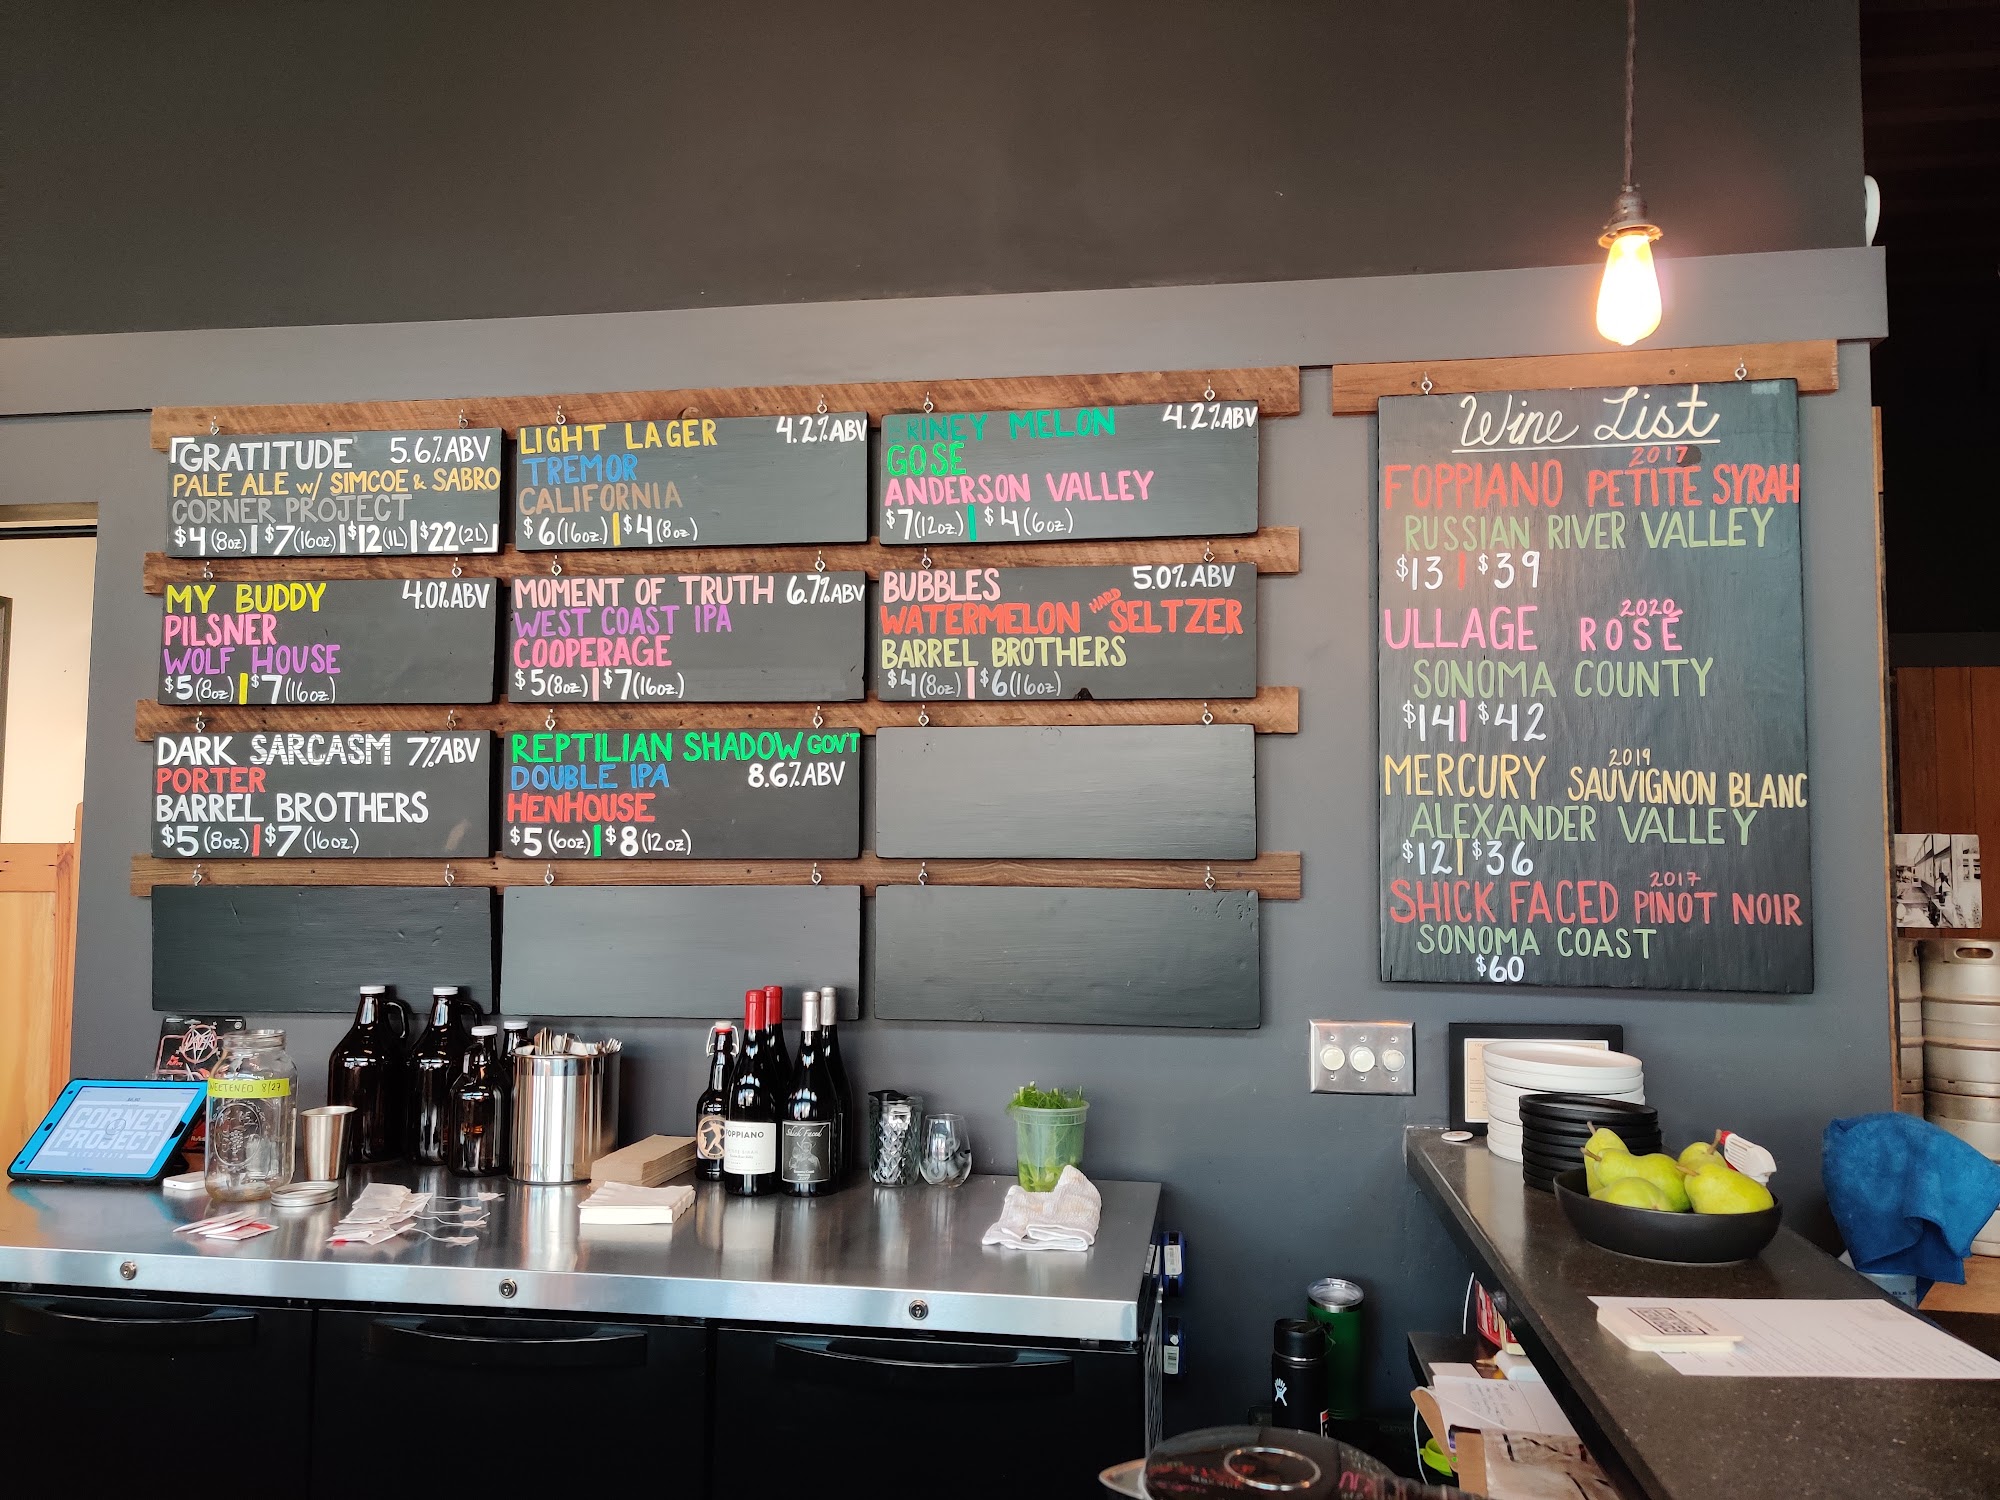 GRATITUDE 5.6% ABV
PALE ALE w/ SIMCOE & SABRO
CORNER PROJECT
$4 (8oz) | $7 (16oz.) | $12 (1L) | $22 (2L)
LIGHT LAGER 4.2% ABV
TREMOR
CALIFORNIA
$6 (16oz.) | $4 (8oz)
BRINEY MELON 4.2% ABV
GOSE
ANDERSON VALLEY
$7 (12oz.) | $4 (6oz)
MY BUDDY 4.0% ABV
PILSNER
WOLF HOUSE
$5 (8oz) | $7 (16oz)
MOMENT OF TRUTH 6.7% ABV
WEST COAST IPA
COOPERAGE
$5 (8oz) | $7 (16oz.)
BUBBLES 5.0% ABV
WATERMELON HARD SELTZER
BARREL BROTHERS
$4 (8oz) | $6 (16oz)
DARK SARCASM 7% ABV
PORTER
BARREL BROTHERS
$5 (8oz) | $7 (16oz.)
REPTILIAN SHADOW GOV'T
DOUBLE IPA 8.6% ABV
HENHOUSE
$5 (6oz) | $8 (12oz.)
Wine List
2017
FOPPIANO PETITE SYRAH
RUSSIAN RIVER VALLEY
$13 | $39
2020
ULLAGE ROSÉ
SONOMA COUNTY
$14 | $42
2019
MERCURY SAUVIGNON BLANC
ALEXANDER VALLEY
$12 | $36
2017
SHICK FACED PINOT NOIR
SONOMA COAST
$60
CORNER
PROJECT
8/27
FOPPIANO
Shick Faced